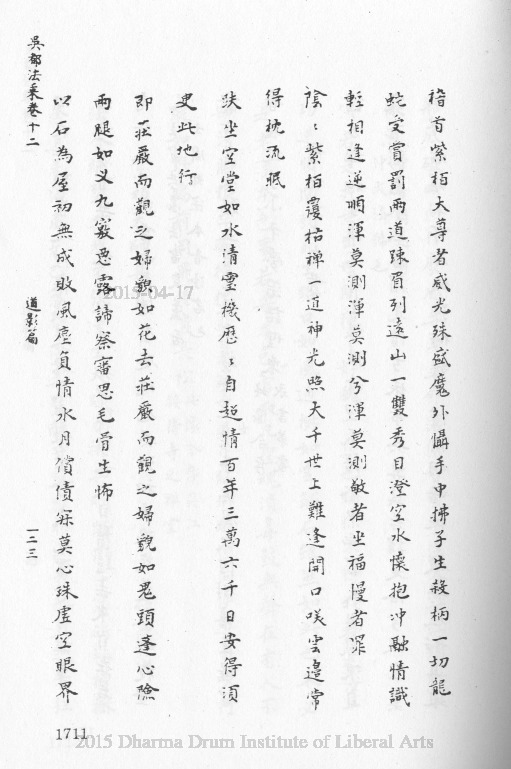 稽首紫栢大尊者威光殊盛魔外懾手中拂子生殺柄一切龍
蛇受賞罰兩道疎眉列遠山一雙秀目澄空水懷抱冲融情識
輕相逢逆順渾莫測渾莫測兮渾莫測敬者坐福慢者罪
陰〻紫栢覆枯禅一道神光照大千世上難逢開口咲雲邉常
得枕流眠
趺坐空堂如水清靈機歷〻自超情百年三萬六千日安得須
臾此地行
即莊嚴而觀之婦貌如花去莊嚴而觀之婦貌如鬼頭蓬心險
兩腿如义九竅惡露諦察審思毛骨生怖
以石為屋初無成敗風塵負情水月償債寂莫心珠虚空眼界
吳都法乘卷十二
道影篇
一二三
1711
2015-04-17
2015 Dharma Drum Institute of Liberal Arts